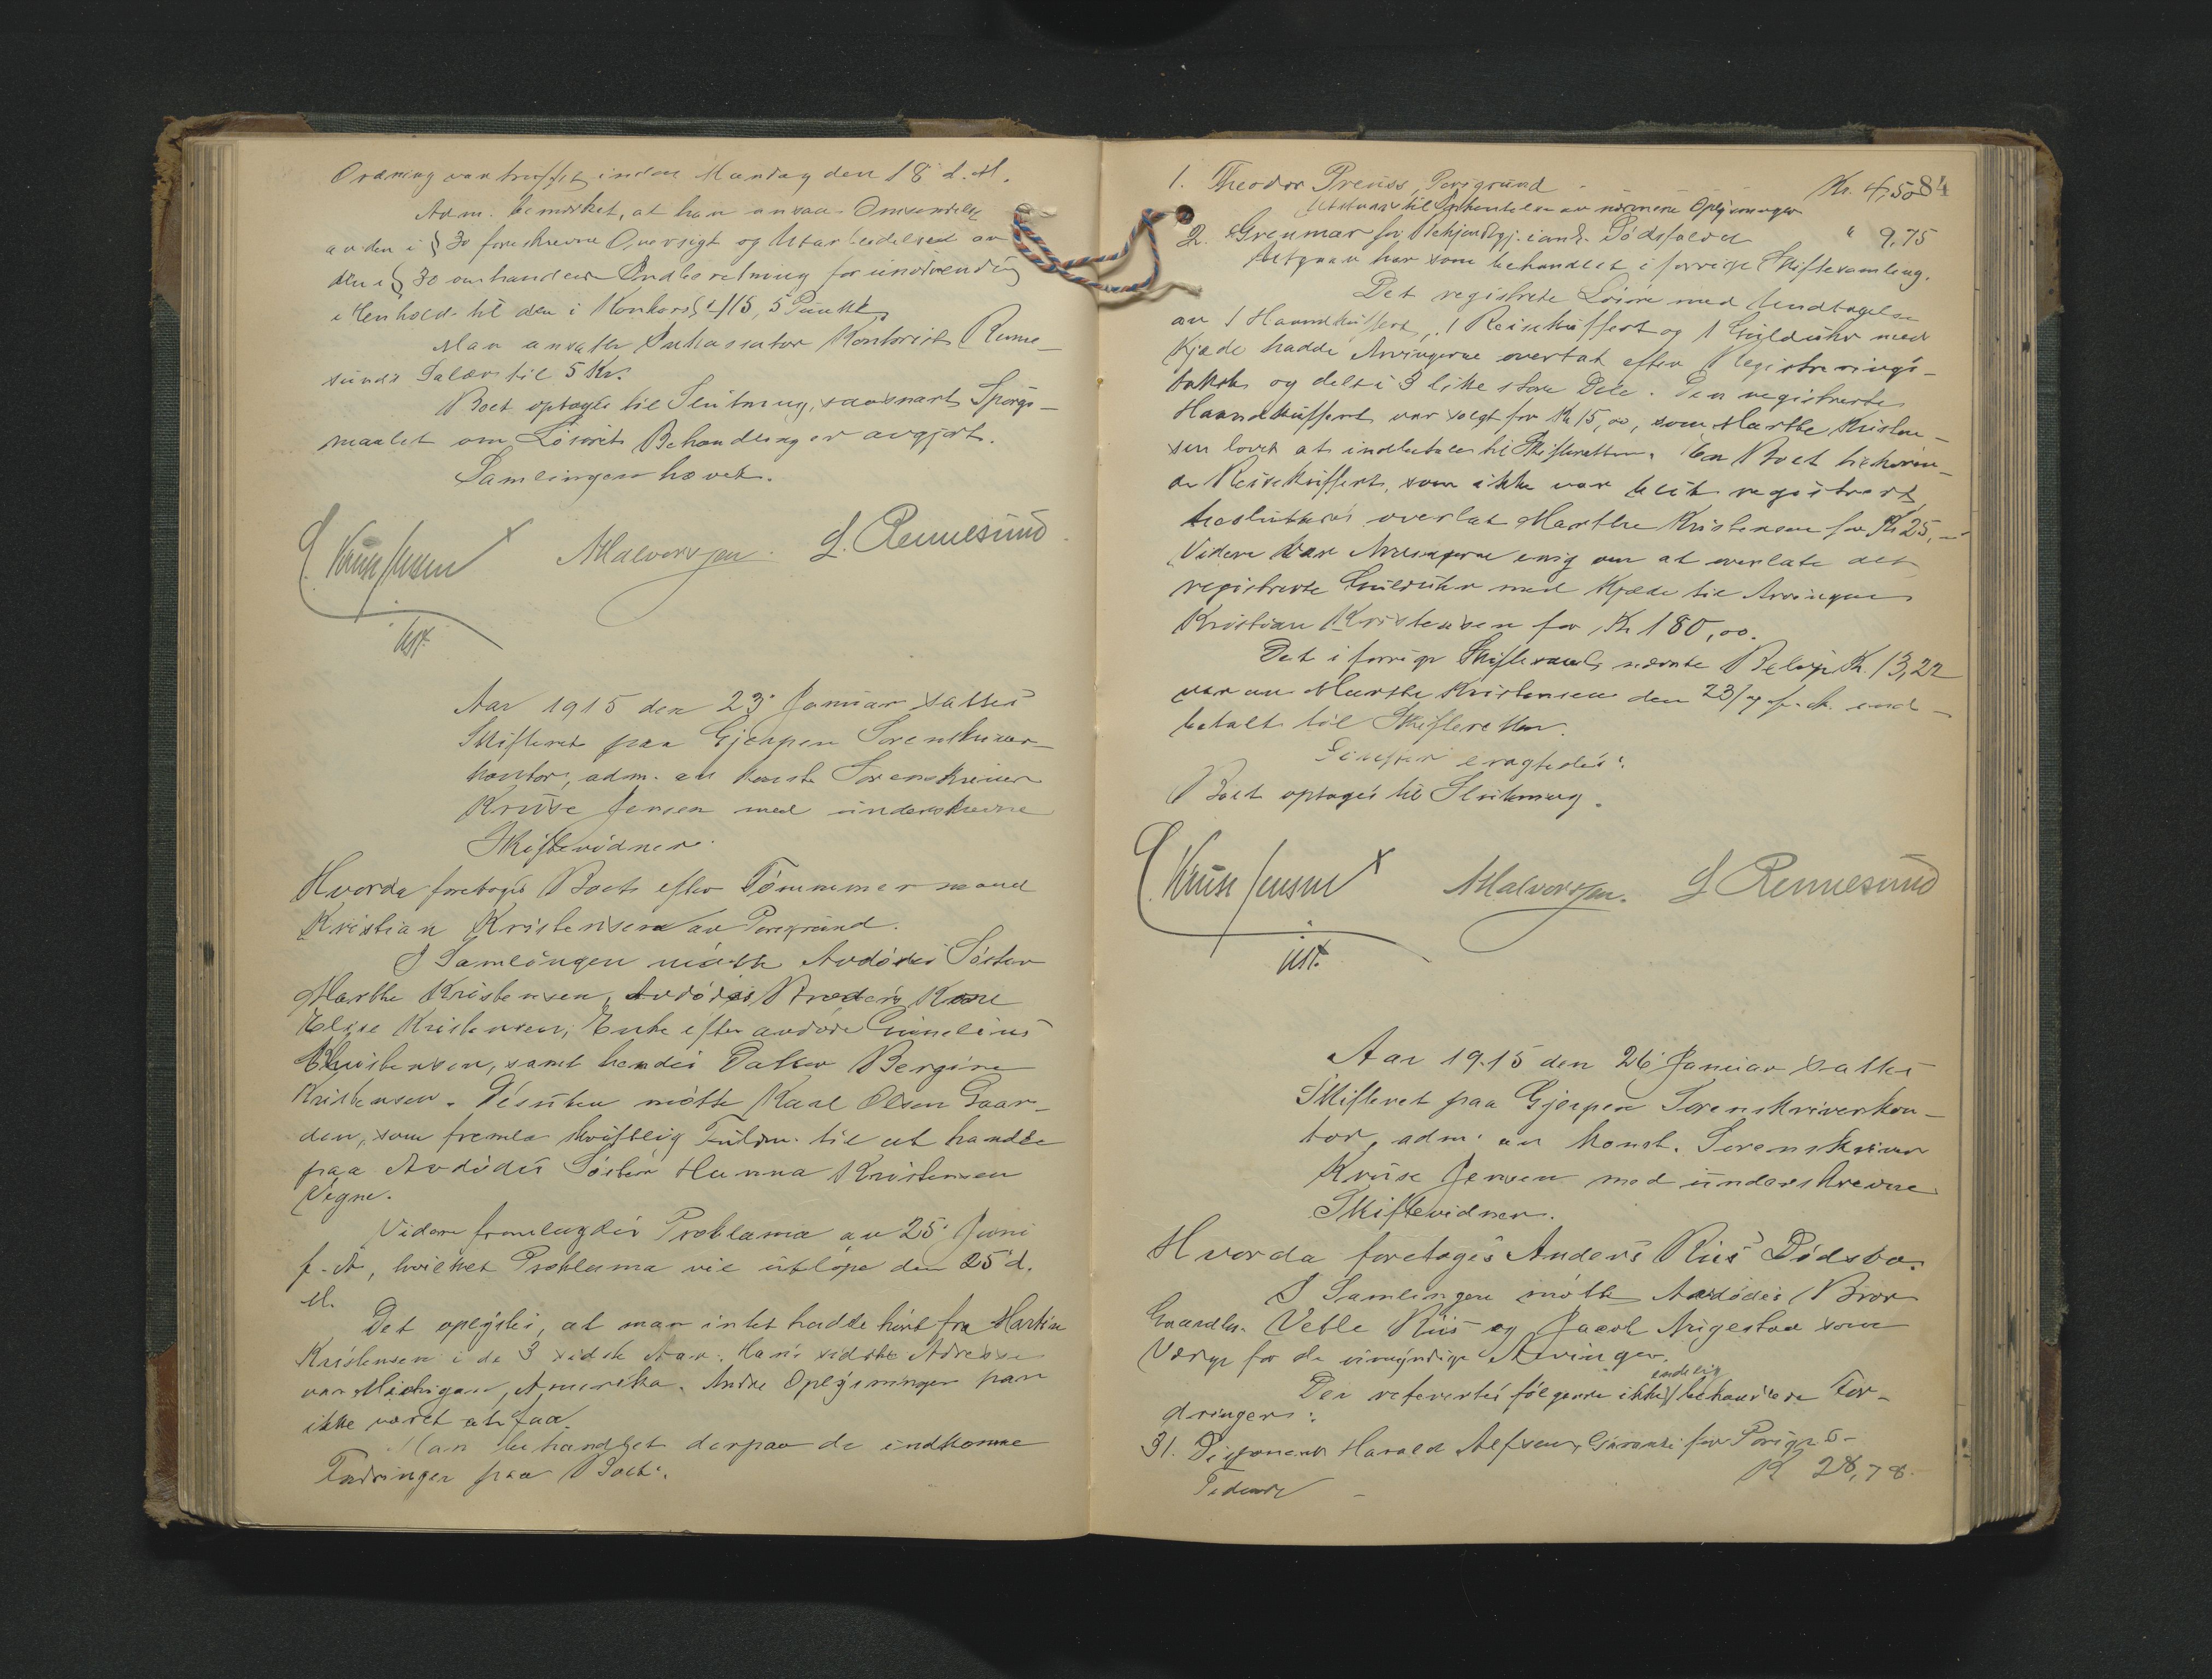 Ordning var truffet inden Mandag den 18 d. M.
Adm. bemerket, at han ansaa Omsendelse
av den i § 30 foreskrevne Oversigt og Utarbeidelsen av
den i § 30 omhandlede Indberetning for unødvendig
i Henhold til den i Konkursl. § 115, 5 Punkt.
Man ansatte Inkassator Kontorist Renne-
sunds Salær til 5 Kr.
Boet optoges til Slutning, saasnart Spørgs-
maalet om Løsørets Behandling er avgjort.
Samlingen hævet.
Kruse Jensen A Halvorsen. L. Rennesund
kst.
Aar 1915 den 23 Januar sattes
Skifteret paa Gjerpen Sorenskriver-
kontor, adm. av konst. Sorenskriver
Kruse Jensen med underskrevne
Skiftevidner.
Hvorda foretoges Boet efter Tømmermand
Kristian Kristensen av Porsgrund.
I Samlingen møtte Avdødes Søster
Marthe Kristensen, Avdødes Broders Kone
Elise Kristensen, Enke efter avdøde
Kristensen, samt hendes Datter Bergine
Kristensen. Desuten møtte Karl Olsen Gaar-
den, som fremla skriftlig Fuldm. til at handle
paa Avdødes Søster Hanna Kristensen
Vegne.
Videre fremlagdes Proklama av 25 Juni
f. A, hvilket Proklama vil utløpe den 25 d.
M.
Det oplystes, at man intet hadde hørt fra Martin
Kristensen i de 3 sidste Aar. Hans sidste Adresse
var Michigan, Amerika. Andre Oplysninger har
ikke været at faa.
Man behandlet derpaa de indkomne
Fordringer paa Boet:
84
1. Theodor Preuss, Porsgrund Kr. 4,50
Utstaar til Indhentelse av nærmere Oplysninger
2. Grenmar for Bekjendtgj. i anl. Dødsfaldet " 9,75
Utgaar har som behandlet i forrige Skiftesamling.
Det registrerte Løsøre med Undtagelse
av 1 Haandkuffert, 1 Reisekuffert og 1 Gulduhr med
Kjæde hadde Arvingerne overtat efter Registrerings-
takst og delt i 3 like store Dele. Den registrerte
Haandkuffert var solgt for Kr 15,00, som Marthe Kristen-
sen lovet at indbetale til Skifteretten. En Boet tilhøren-
de Reisekuffert, som ikke var blit registrert,
besluttes overlat Marthe Kristensen for Kr 25,-
Videre var Arvingerne enig om at overlate det
registrerte Gulduhr med Kjæde til Arvingen
Kristian Kristensen for Kr 180,00.
Det i forrige Skiftesaml. nævnte Beløp Kr. 13,22
var av Marthe Kristensen den 23/7 f. A. ind-
betalt til Skifteretten.
eragtedes:
Boet optoges til Slutning.
Kruse Jensen A Halvorsen. L Rennesund
kst.
Aar 1915 den 26 Januar sattes
Skifteret paa Gjerpen Sorenskriverkon-
tor, adm. av konst. Sorenskriver
Kruse Jensen med underskrevne
Skiftevidner.
Hvorda foretoges Anders Riis' Dødsbo.
I Samlingen møtte Avdødes Bror
Gaardbr. Vetle Riis og Jacob som
Verge for de umyndige Arvinger.
Der refertes følgende ikke endelig behandlede For-
dringer:
31. Disponent Harald Alfsen, Garanti for Porsgr.s
Tidende K 28,78.